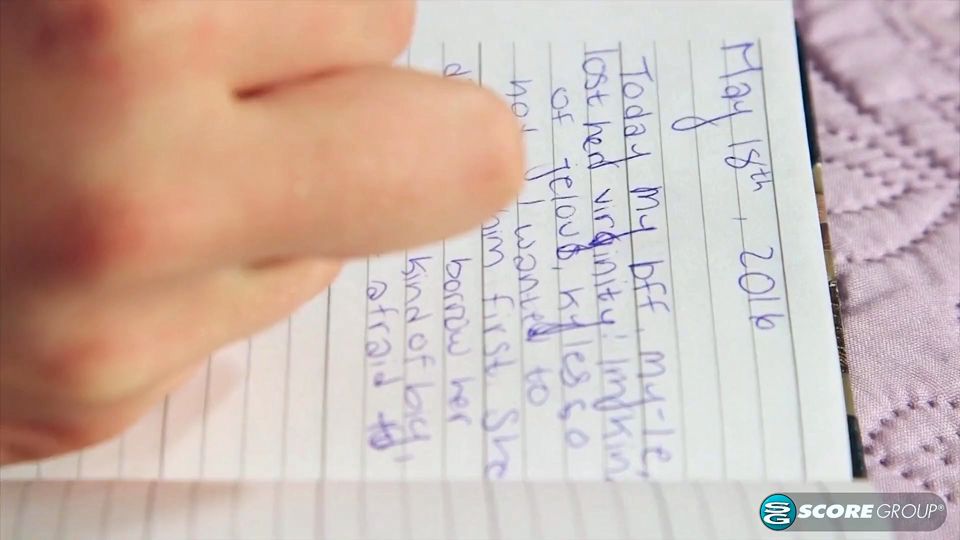 May 18th, 2016
Today my bff, my-le,
lost her virginity! Im kin
of jelous, kyles so
I wanted to
him first. She
borrow her
kind of big,
afraid
SG SCOREGROUP®